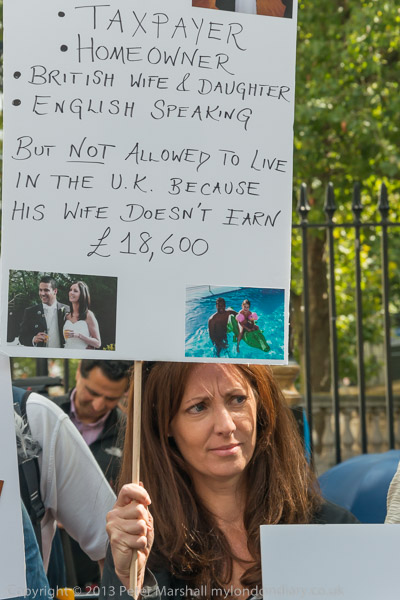 • TAXPAYER
• HOMEOWNER
• BRITISH WIFE & DAUGHTER
• ENGLISH SPEAKING
BUT NOT ALLOWED TO LIVE
IN THE U.K. BECAUSE
HIS WIFE DOESN'T EARN
£18,600
Copyright © 2013 Peter Marshall mylondondiary.co.uk